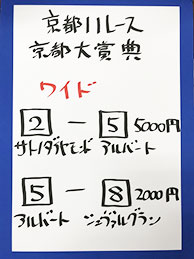 京都11レース
京都大賞典
ワイド
2 - 5 5000円
サトノダイヤモンド アルバート
5 - 8 2000円
アルバート シュヴァルグラン